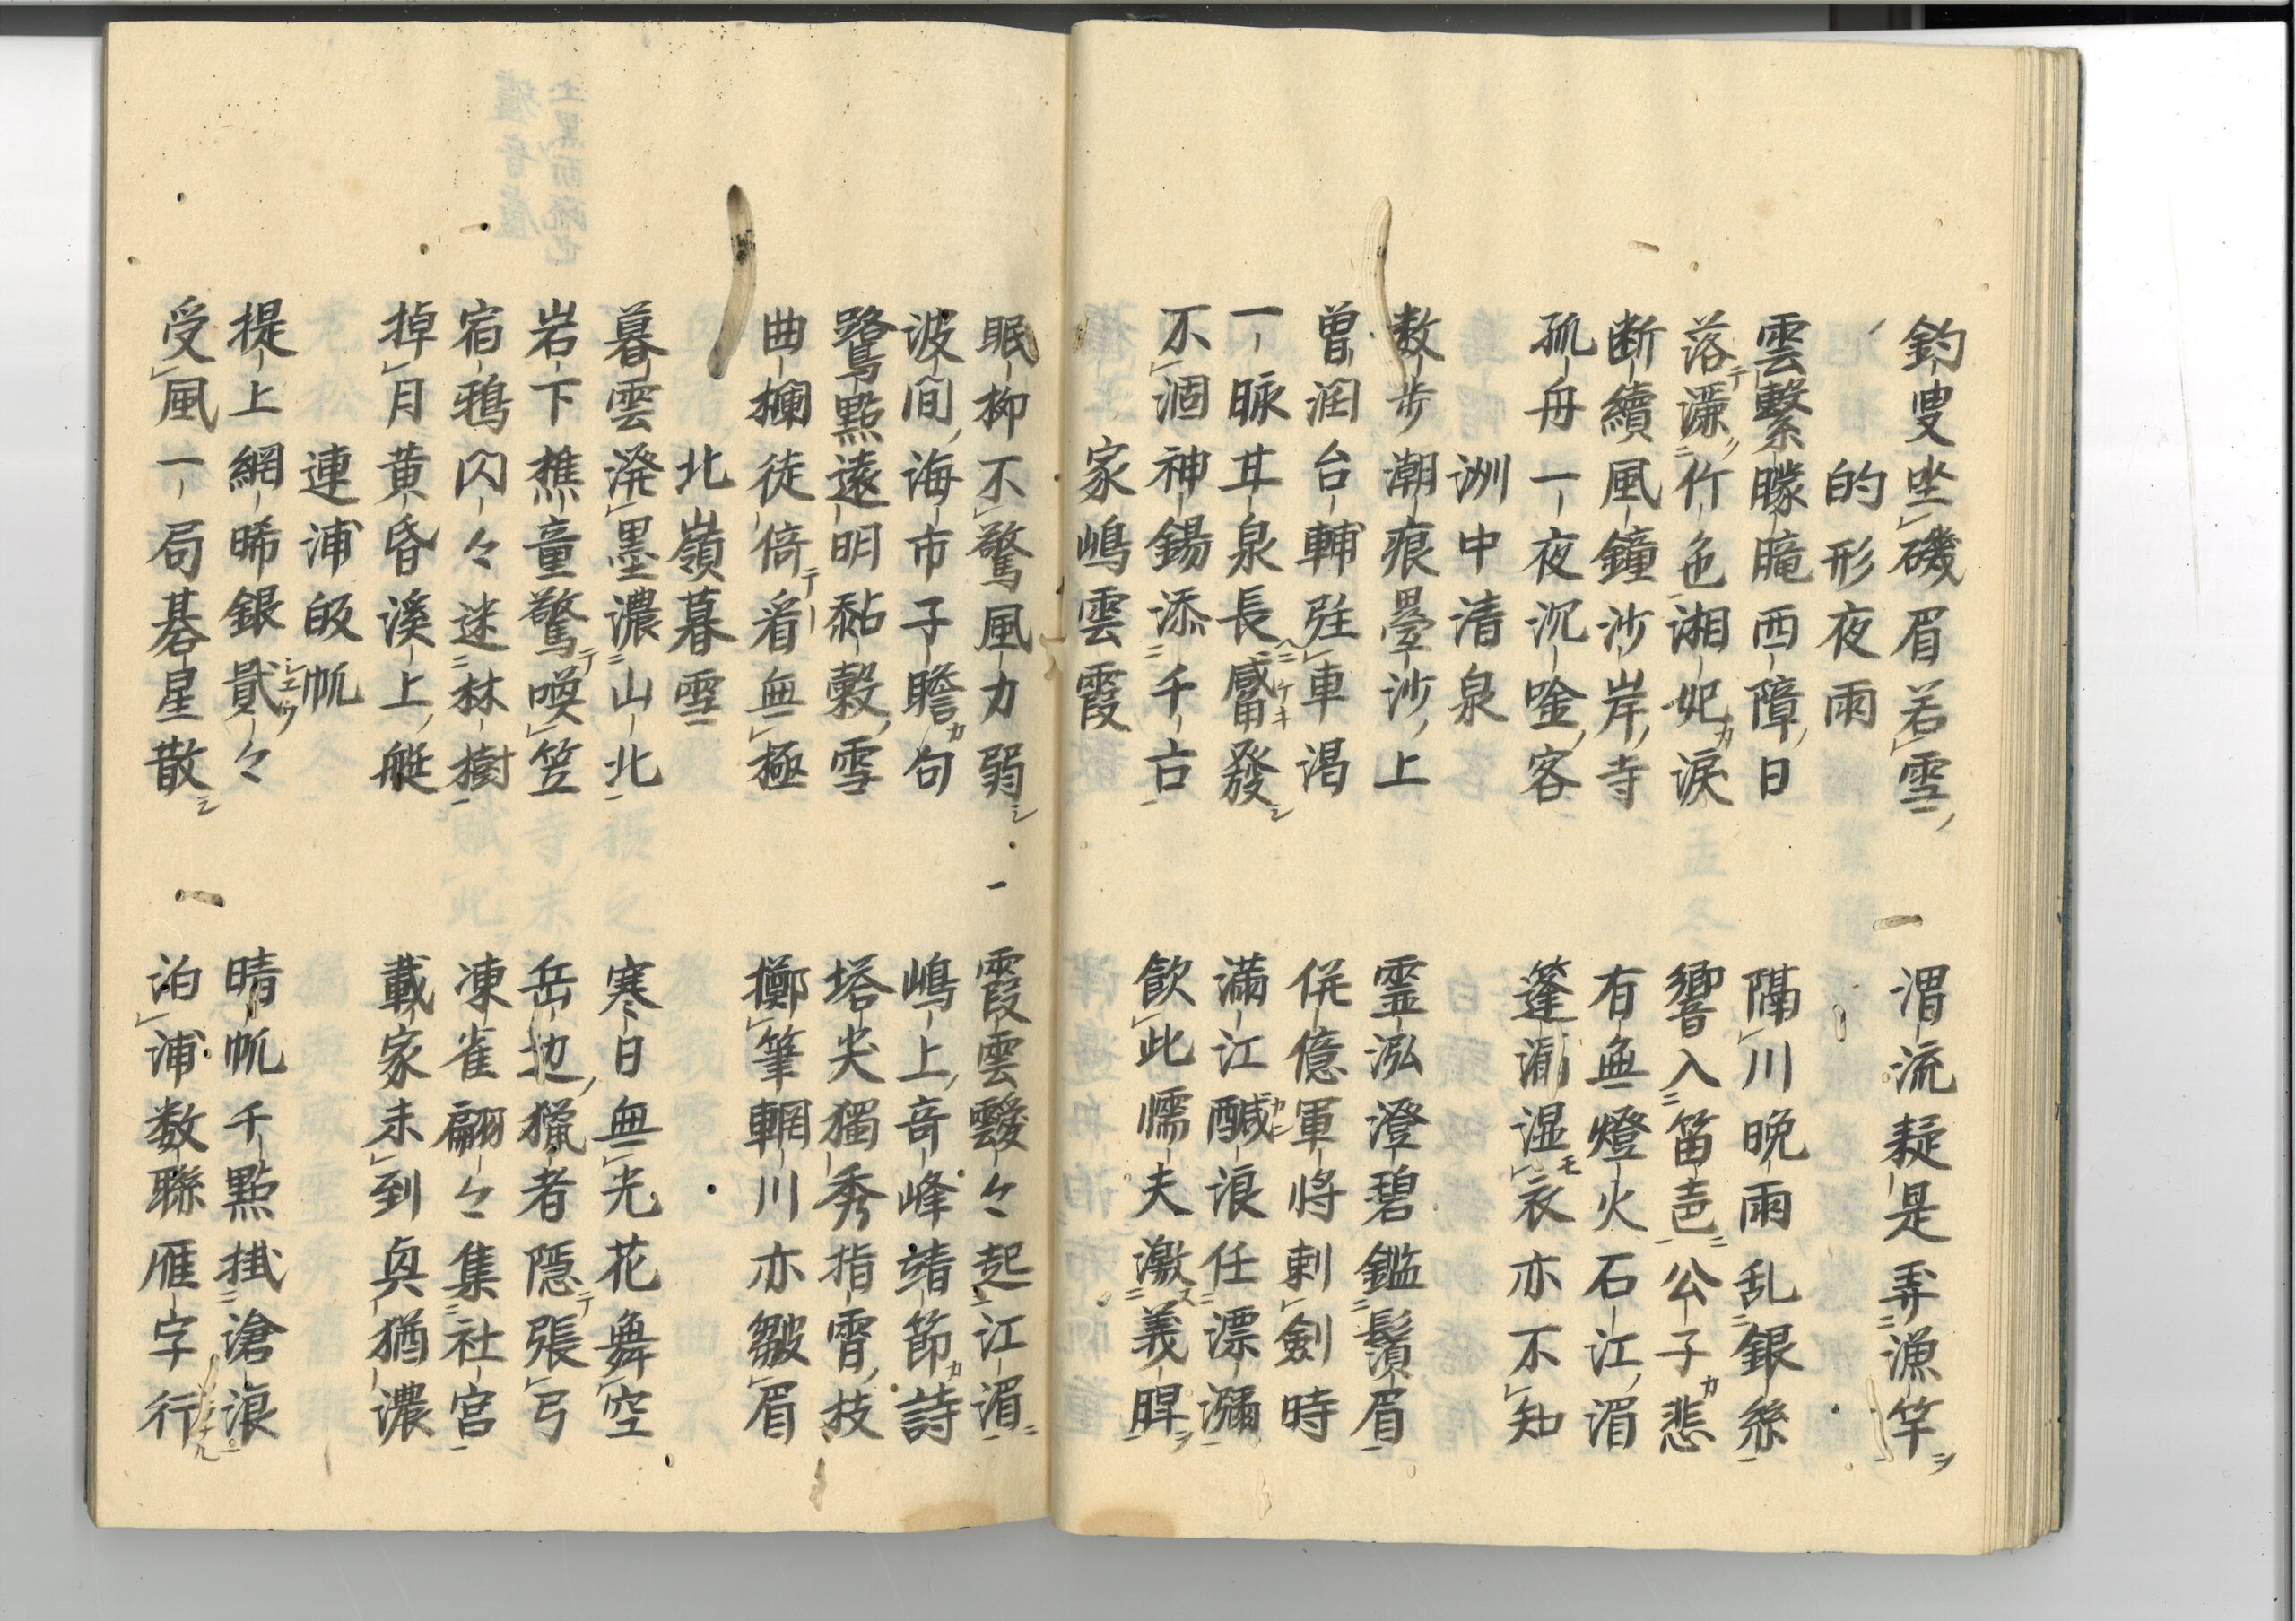 釣叟坐磯眉若雪 渭流疑是弄漁竿
的形夜雨
雲繫朦朧西障日 隔川晩雨乱銀絲
落瀟竹色湘妃涙 響入笛声公子悲
断續風鐘沙岸寺 有無燈火石江湄
孤舟一夜沉唫客 篷漏湿衣亦不知
洲中清泉
数歩潮痕沙上 霊泓澄碧鑑鬚眉
曽潤台輔駐車渇 併億軍将刺剣時
一脉甘泉長觱發 滿江醎浪任漂瀰
不涸神錫添千古 飲此懦夫激義脾
家嶋雲霞
眠柳不驚風力弱 霞雲靉々起江湄
波間海市子瞻句 嶋上竒峰靖節詩
鷺點遠明黏縠雪 塔尖獨秀指霄枝
曲欄徒倚看無極 擲筆輞川亦皺眉
北嶺暮雪
暮雲溌墨濃山北 寒日無光花舞空
岩下樵童驚喚笠 岳边獵者隠張弓
宿鴉閃々迷林樹 凍雀翩々集社宮
掉月黄昏溪上艇 載家未到真猶濃
連浦皈帆
提上網晞銀貳々 晴帆千點掛滄浪
受風一局棊星散 泊浦数聯雁字行